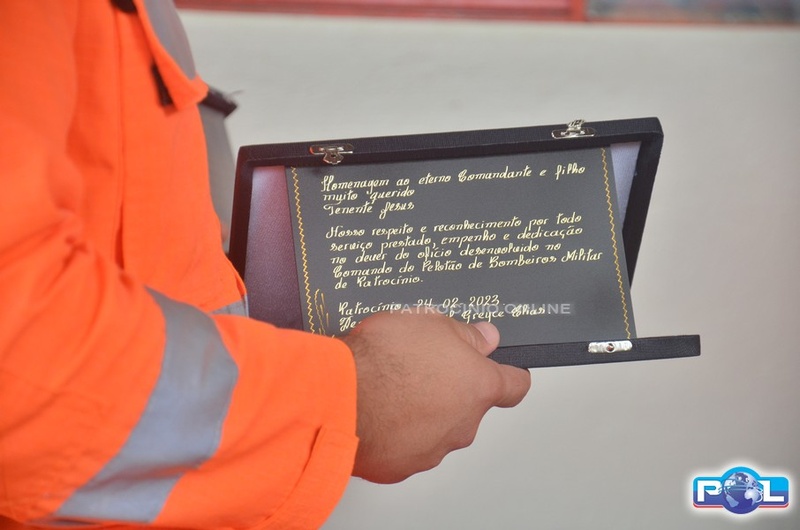 Homenagem ao eterno Comandante e filho
muito querido
Tenente Jesus
Nosso respeito e reconhecimento por todo
serviço prestado, empenho e dedicação
no dever do ofício desenvolvido no
Comando do Pelotão de Bombeiros Militar
de Patrocínio.
Patrocínio, 24.02.2023
Greyce Elias
PATROCINIO ONLINE
POL